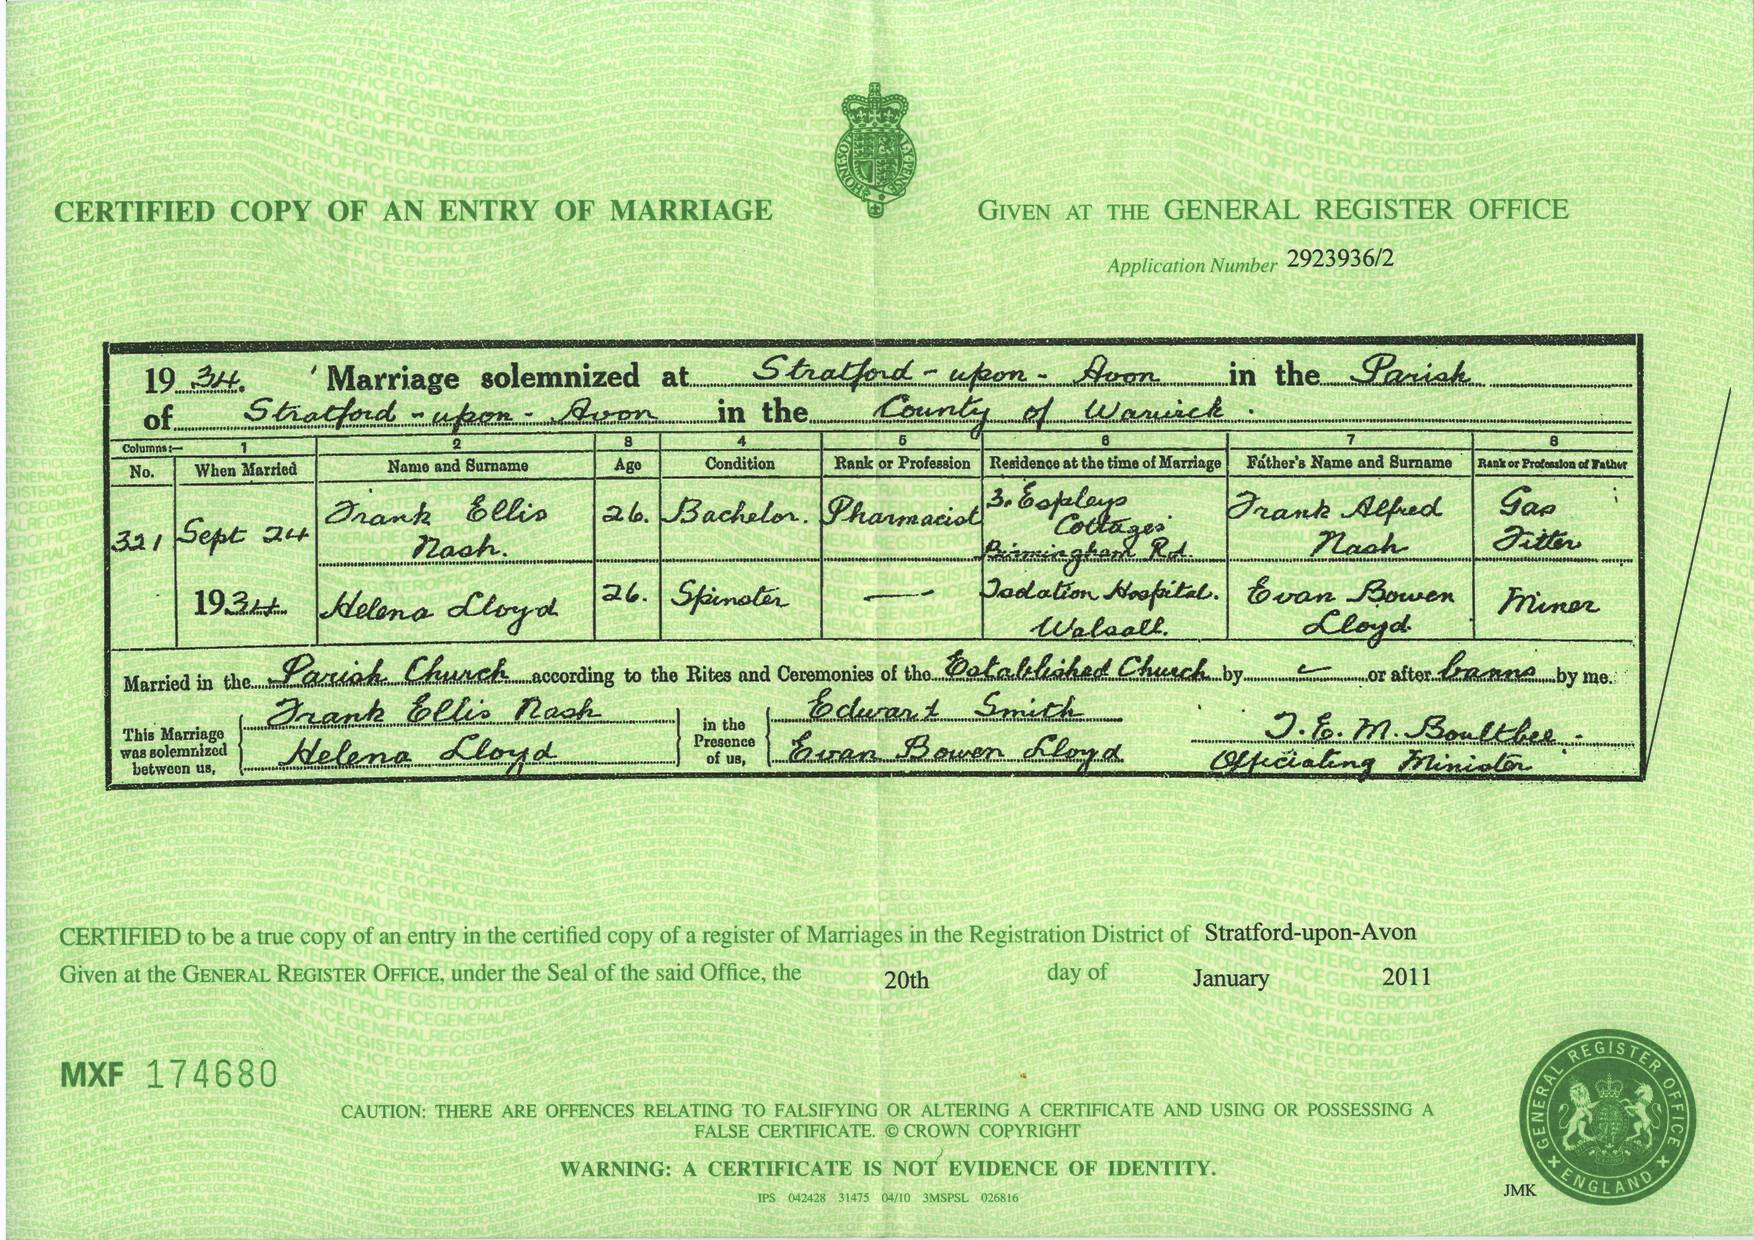 CERTIFIED COPY OF AN ENTRY OF MARRIAGE
GIVEN AT THE GENERAL REGISTER OFFICE
Application Number 2923936/2
1934. Marriage solemnized at Stratford-upon-Avon in the Parish
of Stratford-upon-Avon in the County of Warwick.
Columns:— 1 2 3 4 5 6 7 8
No. When Married Name and Surname Age Condition Rank or Profession Residence at the time of Marriage Father's Name and Surname Rank or Profession of Father
321 Sept 24 1934 Frank Ellis Nash. 26. Bachelor. Pharmacist 3. Espleys Cottages Birmingham Rd. Frank Alfred Nash Gas Fitter
Helena Lloyd 26. Spinster — Isolation Hospital. Walsall. Evan Bowen Lloyd Miner
Married in the Parish Church according to the Rites and Ceremonies of the Established Church by or after banns by me.
This Marriage was solemnized between us, Frank Ellis Nash Helena Lloyd in the Presence of us, Edward Smith Evan Bowen Lloyd T. E. M. Boultbee. Officiating Minister
CERTIFIED to be a true copy of an entry in the certified copy of a register of Marriages in the Registration District of Stratford-upon-Avon
Given at the GENERAL REGISTER OFFICE, under the Seal of the said Office, the 20th day of January 2011
MXF 174680
CAUTION: THERE ARE OFFENCES RELATING TO FALSIFYING OR ALTERING A CERTIFICATE AND USING OR POSSESSING A
FALSE CERTIFICATE. © CROWN COPYRIGHT
WARNING: A CERTIFICATE IS NOT EVIDENCE OF IDENTITY.
IPS 042428 31475 04/10 3MSPSL 026816
JMK
GENERAL REGISTER OFFICE
ENGLAND